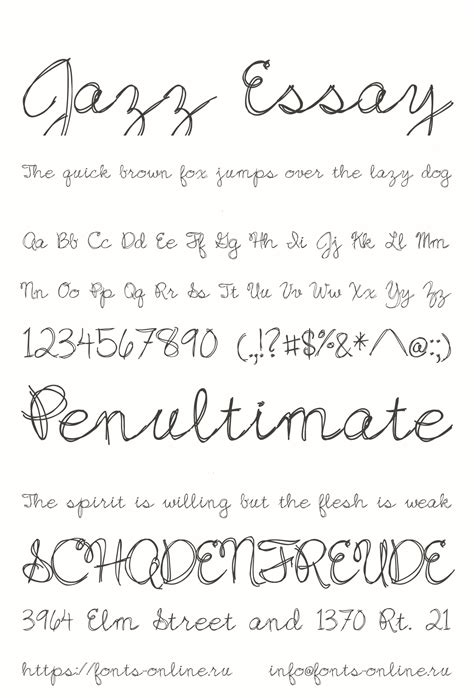 Jazz Essay
The quick brown fox jumps over the lazy dog
Aa Bb Cc Dd Ee Ff Gg Hh Ii Jj Kk Ll Mm
Nn Oo Pp Qq Rr Ss Tt Uu Vv Ww Xx Yy Zz
1234567890 (.,!?#$%&*/\@:;)
Penultimate
The spirit is willing but the flesh is weak
SCHADENFREUDE
3964 Elm Street and 1370 Rt. 21
https://fonts-online.ru info@fonts-online.ru